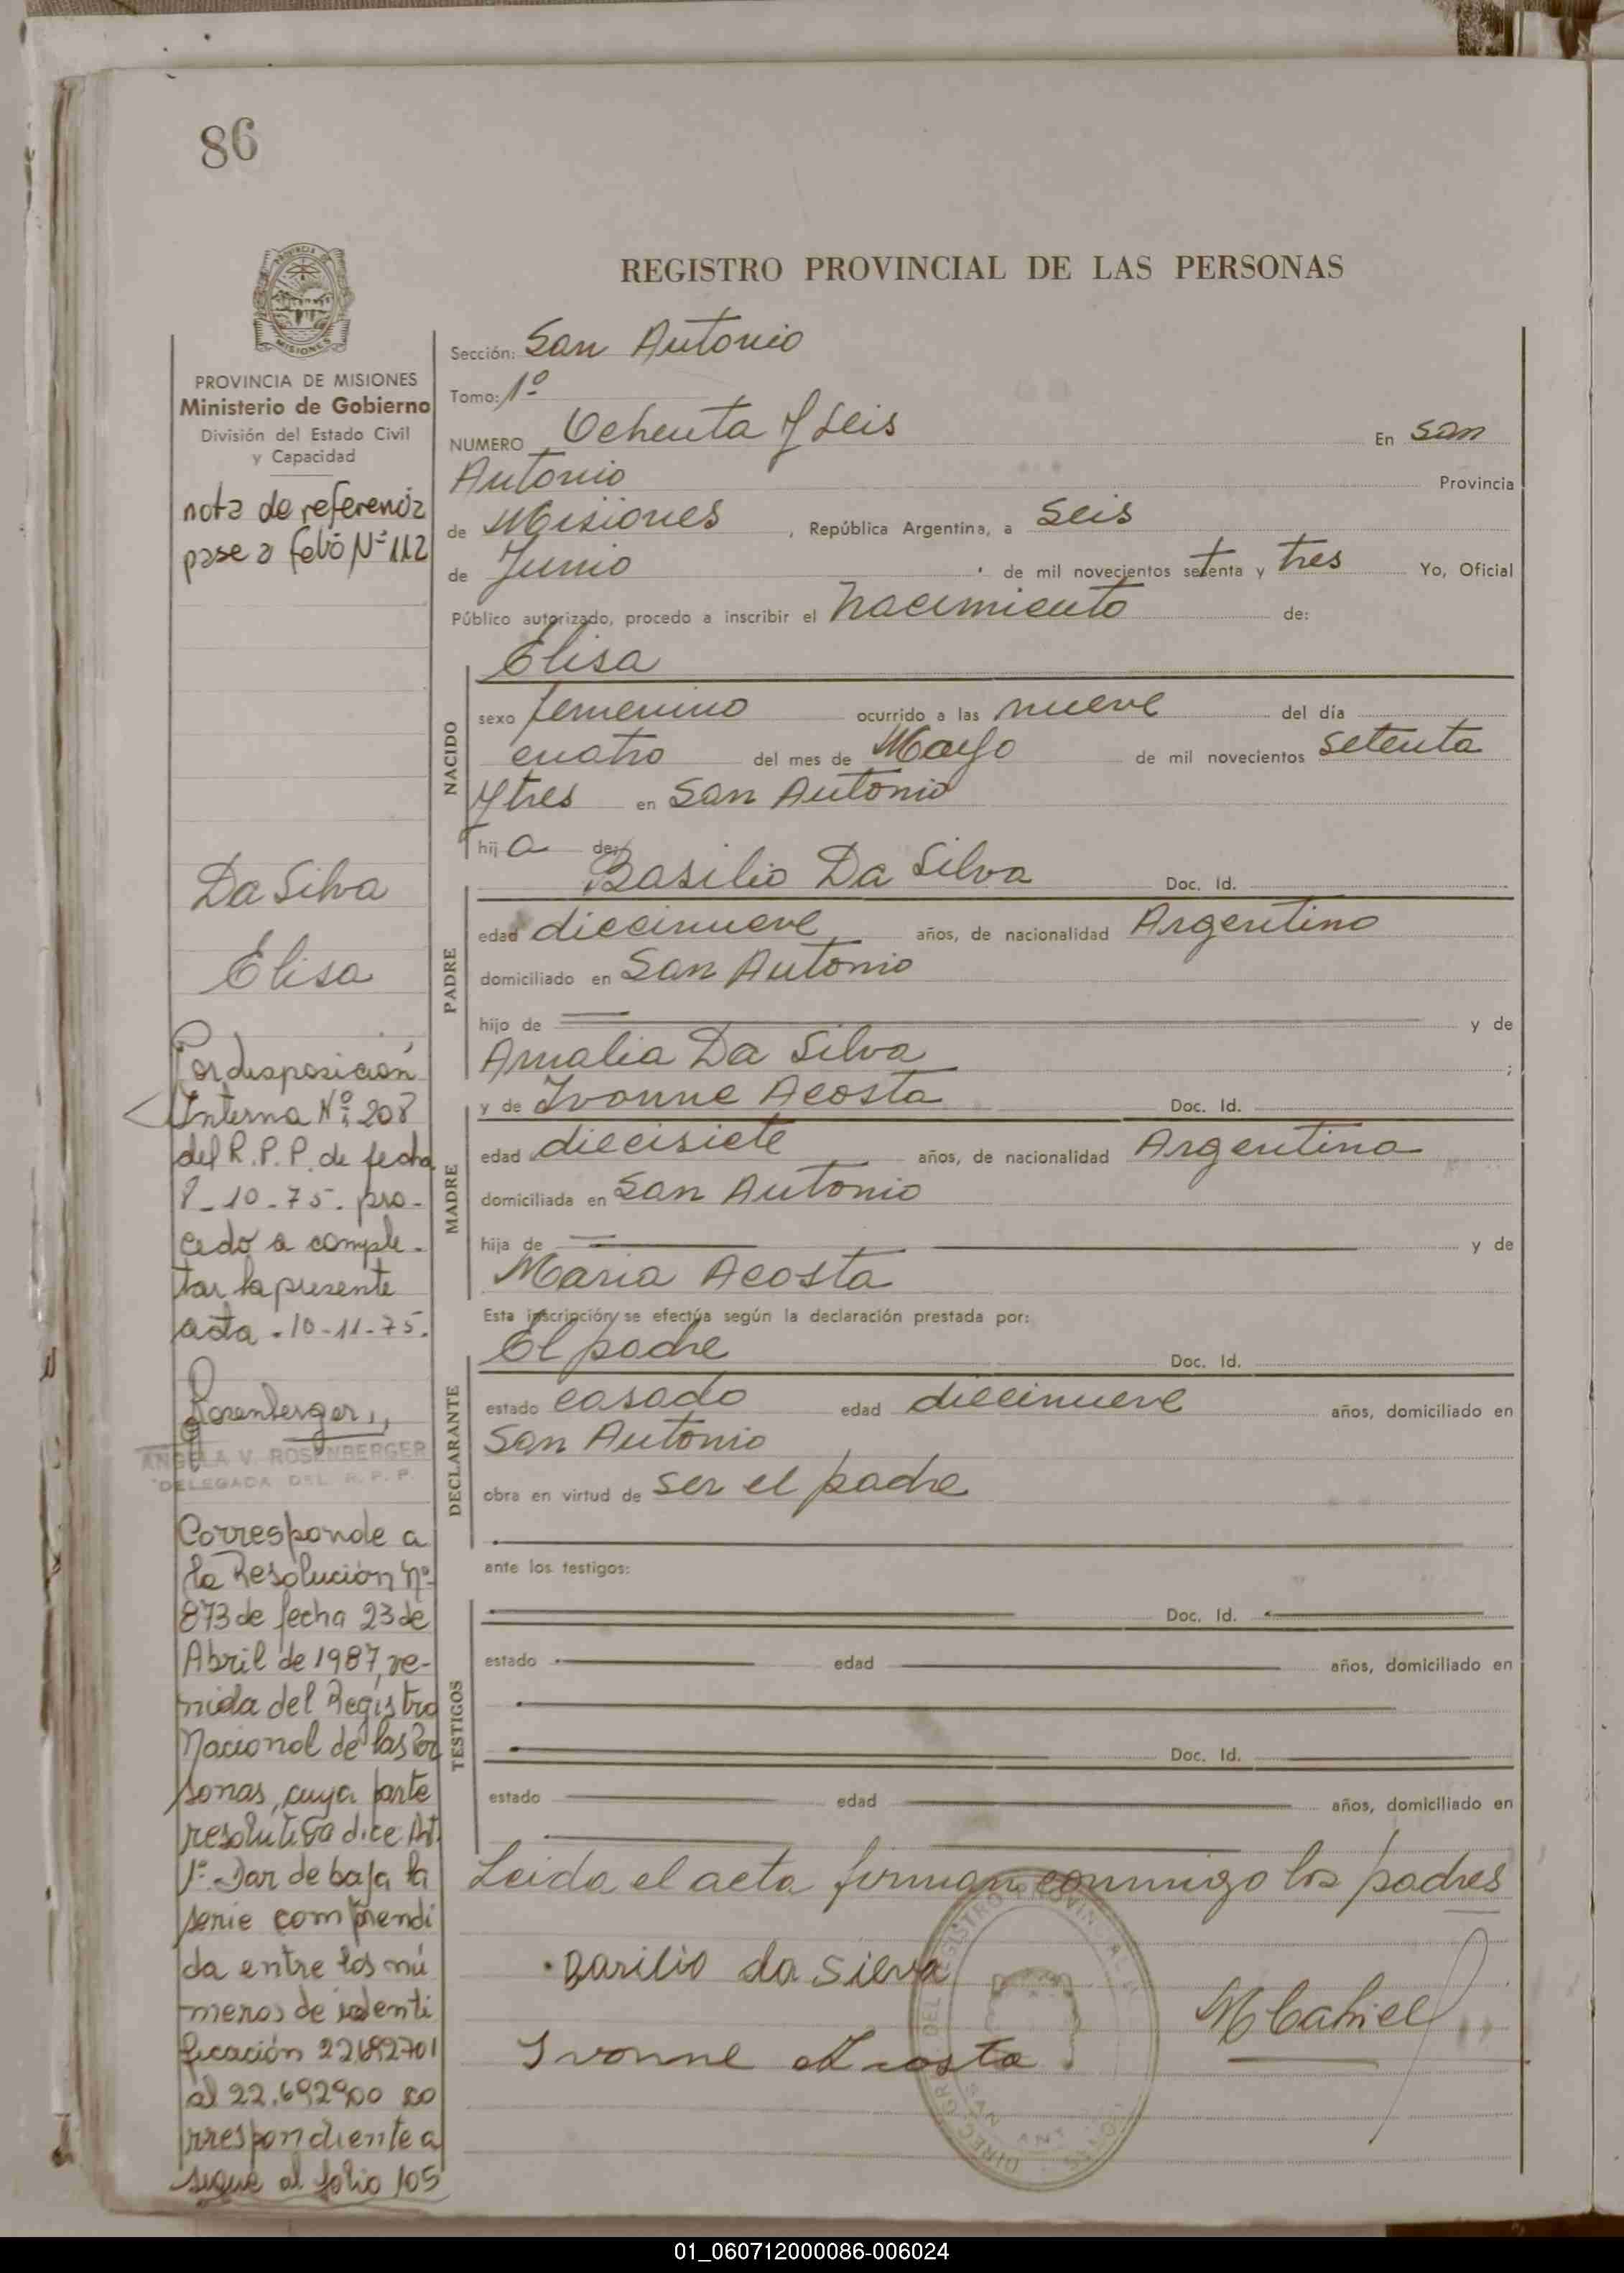 86
PROVINCIA DE
MISIONES
PROVINCIA DE MISIONES
Ministerio de Gobierno
División del Estado Civil
y Capacidad
nota de referencia
pase a folio Nº 112
Da Silva
Elisa
Por disposición
Interna Nº: 208
del R.P.P. de fecha
8-10-75. pro-
cedo a comple-
tar la presente
acta. 10-11-75.
Rosenberger
ANGELA V. ROSENBERGER
DELEGADA DEL R. P. P.
Corresponde a
la Resolución Nº
873 de fecha 23 de
Abril de 1987, re-
mida del Registro
Nacional de las Per
sonas, cuya parte
resolutiva dice: Art.
1º. Dar de baja la
serie comprendi
da entre los nú
meros de identi
ficación 22692701
al 22.692900 co
rrespondiente a
sigue al folio 105
REGISTRO PROVINCIAL DE LAS PERSONAS
Sección: San Antonio
Tomo: 1º
NUMERO Ochenta y seis En San
Antonio Provincia
de Misiones, República Argentina, a seis
de Junio de mil novecientos setenta y tres Yo, Oficial
Público autorizado, procedo a inscribir el nacimiento de:
Elisa
NACIDO
sexo femenino ocurrido a las nueve del día
cuatro del mes de Mayo de mil novecientos setenta
y tres en San Antonio
hij a de:
Basilio Da Silva Doc. Id.
PADRE
edad diecinueve años, de nacionalidad Argentino
domiciliado en San Antonio
hijo de y de
Amalia Da Silva ;
y de Ivonne Acosta Doc. Id.
MADRE
edad diecisiete años, de nacionalidad Argentina
domiciliada en San Antonio
hija de y de
Maria Acosta
Esta inscripción se efectúa según la declaración prestada por:
El padre Doc. Id.
DECLARANTE
estado casado edad diecinueve años, domiciliado en
San Antonio
obra en virtud de ser el padre
ante los testigos:
TESTIGOS
Doc. Id.
estado edad años, domiciliado en
Doc. Id.
estado edad años, domiciliado en
Leida el acta firman conmigo los padres
Basilio da Silva
Ivonne Acosta
01_060712000086-006024